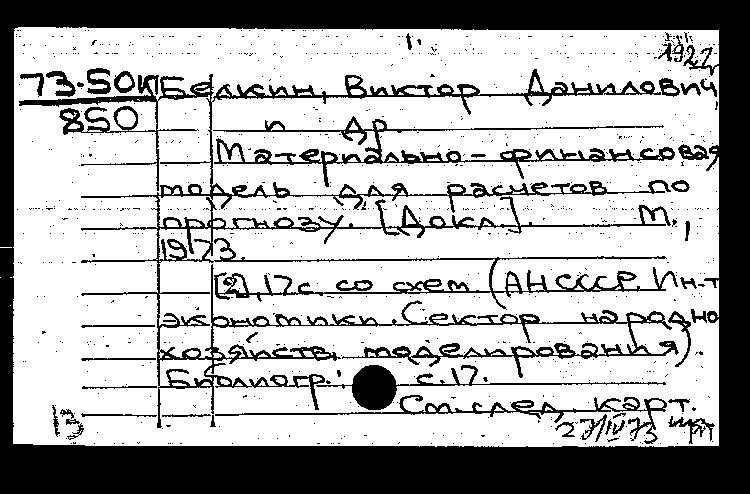 1.
1922
73-50К Белкин, Виктор Данилович
850 и др.
Материально-финансовая
модель для расчетов по
прогнозу. [Докл.]. М.,
1973.
[2], 17с. со схем (АН СССР. Ин-т
экономики. Сектор народно
хозяйств. моделирования).
Библиогр.: с.17.
См. след. карт.
13 27/IV 73